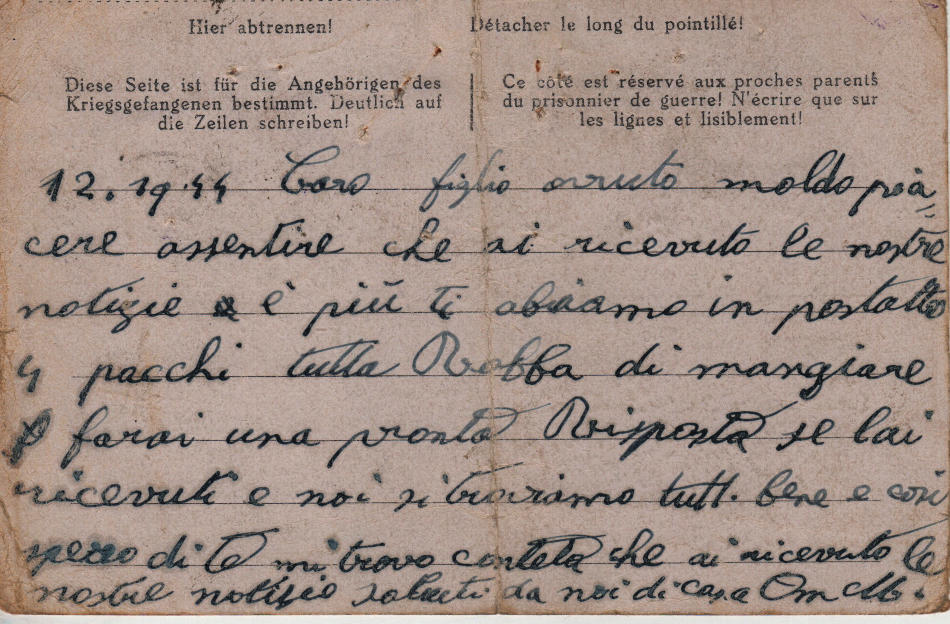 Hier abtrennen!
Détacher le long du pointillé!
Diese Seite ist für die Angehörigen des
Kriegsgefangenen bestimmt. Deutlich auf
die Zeilen schreiben!
Ce côté est réservé aux proches parents
du prisonnier de guerre! N'écrire que sur
les lignes et lisiblement!
12.1944 Caro figlio orruto moldo pia=
cere assentire che ai ricevuto le nostre
notizie e è più ti abiamo in postatto
4 pacchi tutta Robba di mangiare
farai una pronta Risposta se lai
ricevuti e noi si troviamo tutt. bene e così
spero di te mi trovo conteta che ai ricevuto le
nostre notizie saluti da noi di casa